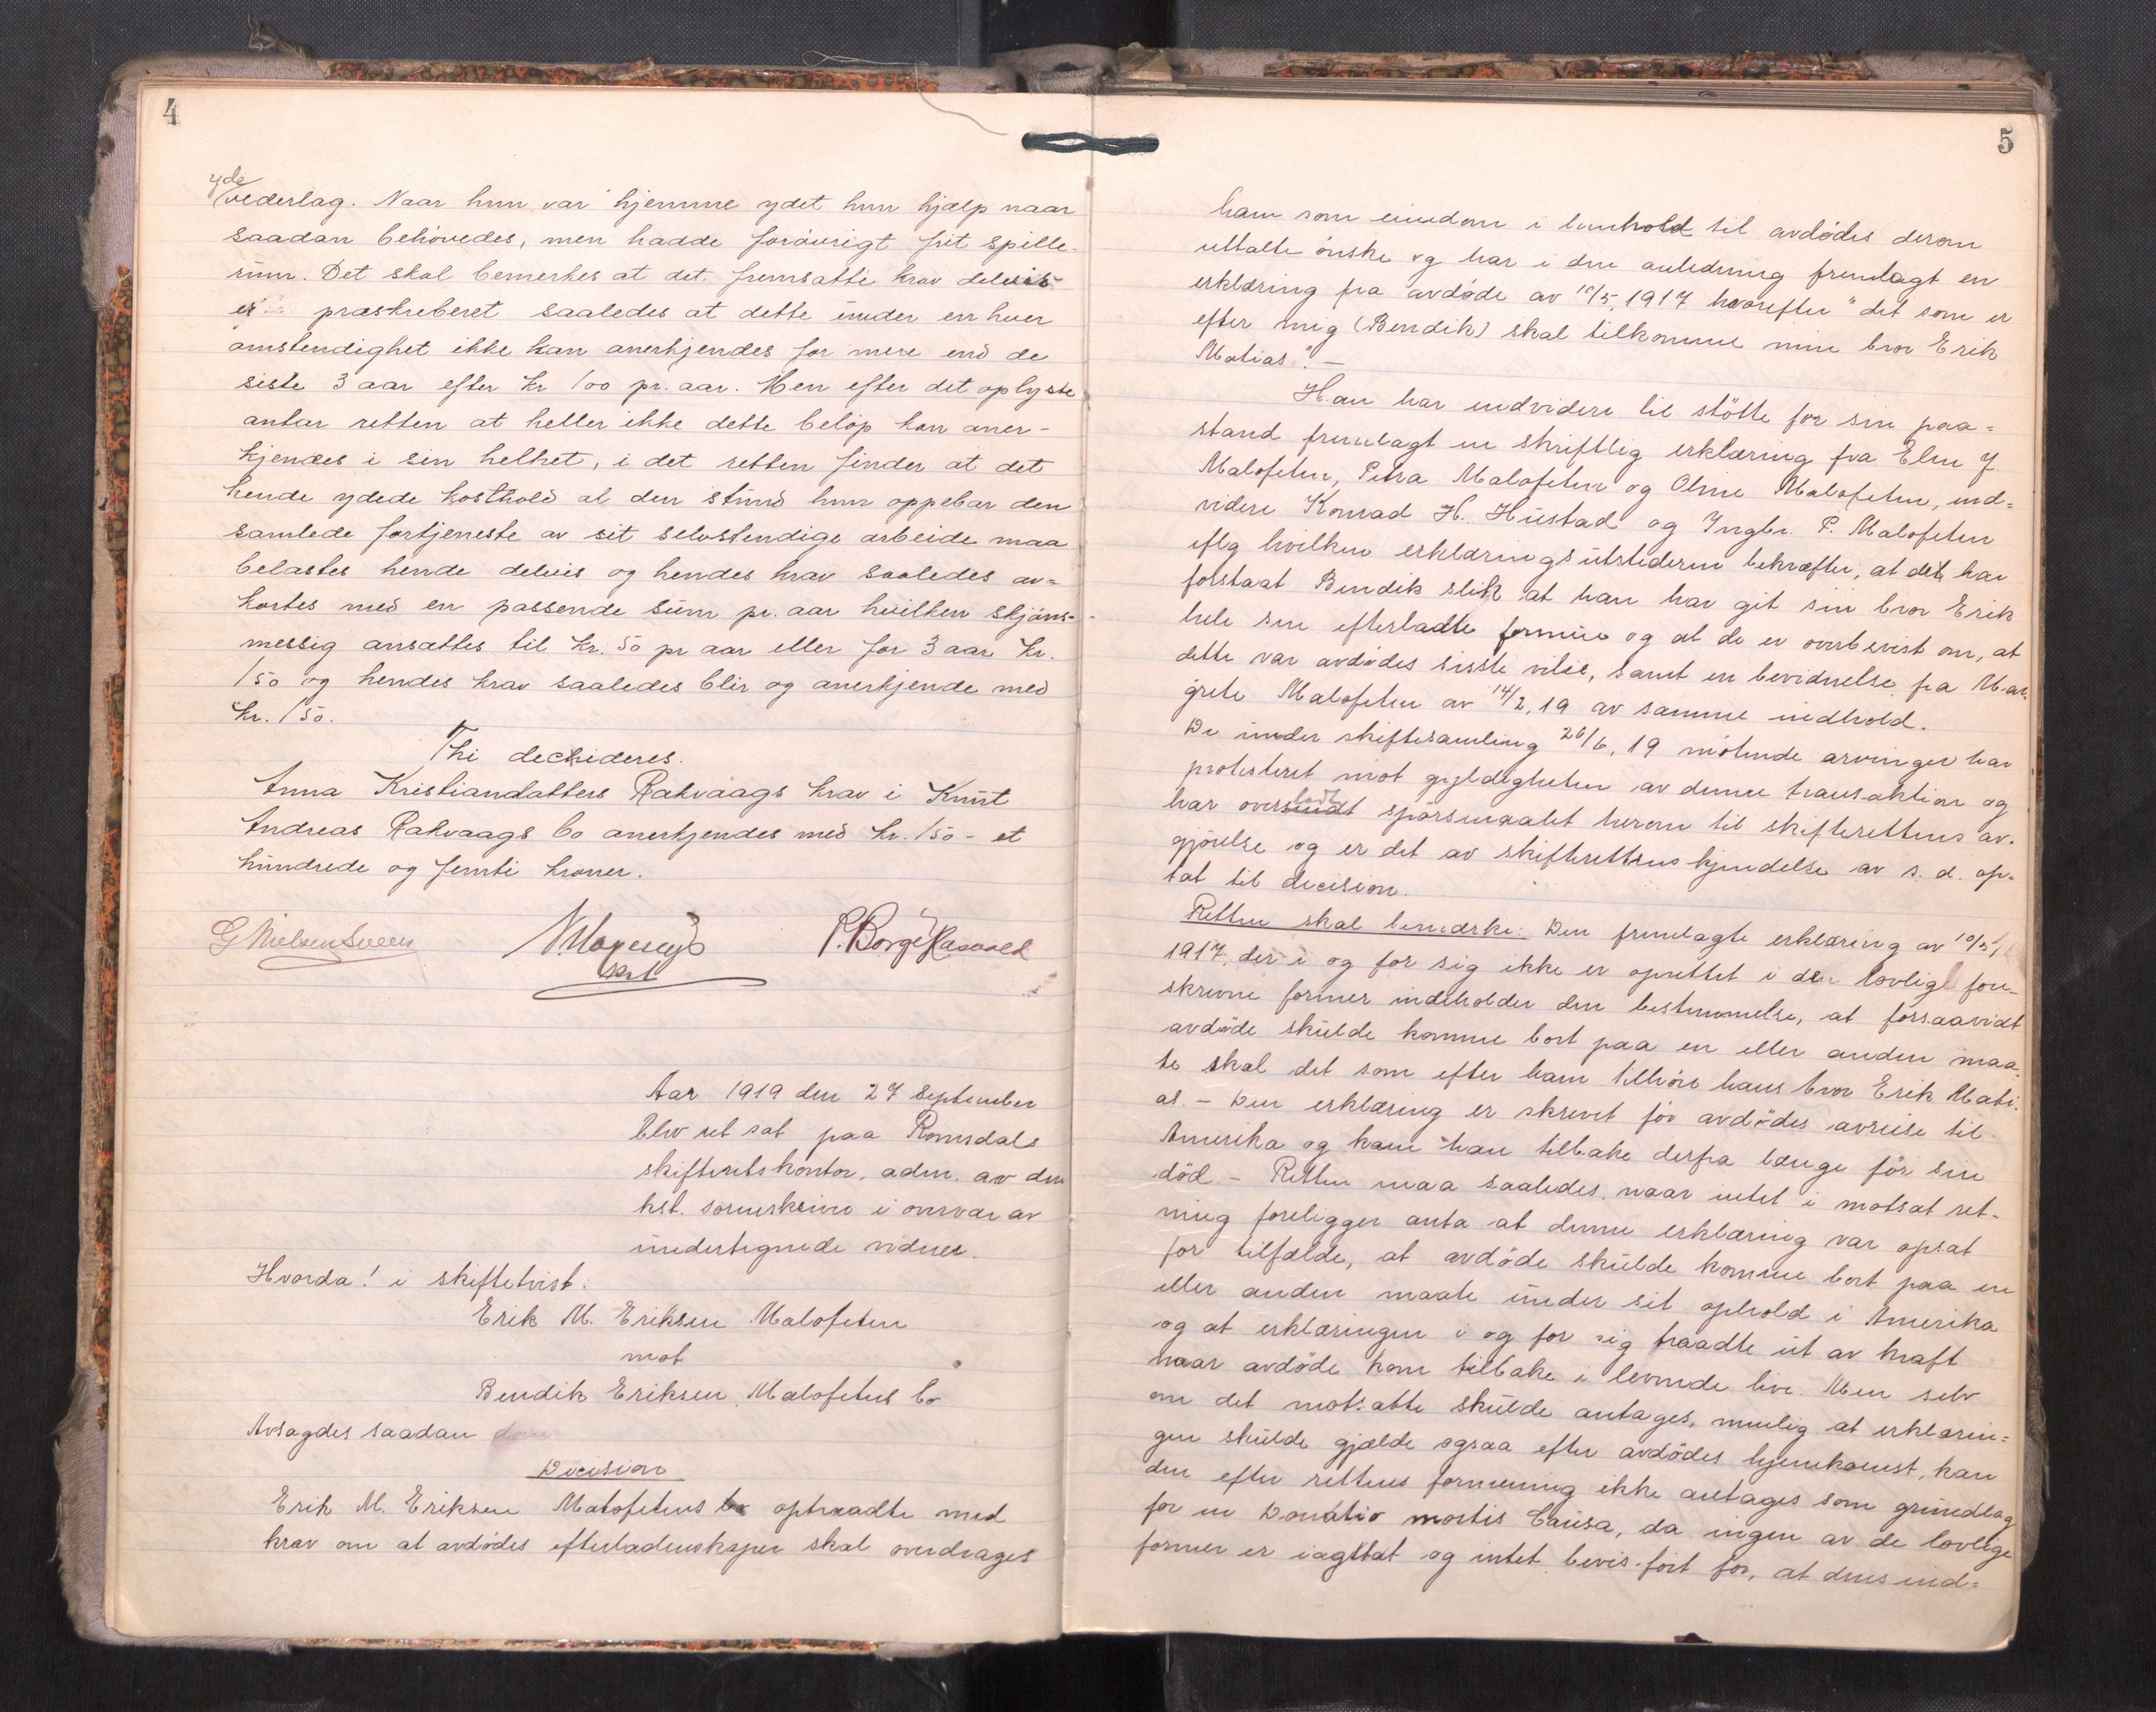 4
yde
vederlag. Naar hun var hjemme ydet hun hjælp naar
saadan behövedes, men hadde forövrigt frit spille-
rum. Det skal bemerkes at det fremsatte krav delvis
er præskriberet saaledes at dette under enhver
omstendighet ikke kan anerkjendes for mere end de
siste 3 aar efter kr 100 pr. aar. Men efter det oplyste
antar retten at heller ikke dette belöp kan aner-
kjendes i sin helhet, i det retten finder at det
hende ydede kosthold al den stund hun oppebar den
samlede fortjeneste av sit selvstendige arbeide maa
belastes hende delvis og hendes krav saaledes av=
kortes med en passende sum pr. aar hvilken skjöns-
messig ansættes til kr. 50 pr aar eller for 3 aar kr.
150 og hendes krav saaledes blir og anerkjende med
kr. 150.
Thi decideres.
Anna Kristiandatters Rakvaags krav i Knut
Andreas Rakvaags bo anerkjendes med kr. 150 - et
hundrede og femti kroner.
G Nielsen P. Borge
Aar 1919 den 27 September
blev ret sat paa Romsdals
skifteretskontor, adm. av den
kst. sorenskriver i overvær av
undertegnede vidner.
Hvorda! i skiftetvist:
Erik M. Eriksen Malofeten
mot
Bendik Eriksen Malofetens bo
Avsagdes saadan
Decision
Erik M. Eriksen Malofetens bo optraadte med
krav om at avdødes efterladenskaper skal overdrages
5
ham som eiendom i henhold til avdødes derom
uttalte önske og har i den anledning fremlagt en
erklæring fra avdöde av 10/5, 1917 hvorefter "det som er
efter mig (Bendik) skal tilkomme min bror Erik
Matias". -
Han har endvidere til stötte for sin paa=
stand fremlagt en skriftlig erklæring fra Elen J.
Malofeten, Petra Malofeten og Oline Malofeten, end=
videre Konrad H. Hustad og Ingbr. P. Malofeten
iflg hvilken erklærings utstederen bekræfter, at det har
forstaat Bendik slik at han har git sin bror Erik
hele sin efterladte formue og at de er overbevist om, at
dette var avdødes sisste vilje, samt en bevidnelse fra Mar-
grete Malofeten av 14/2, 19 av samme indhold.
De under skiftesamling 26/6, 19 mötende arvinger har
protesteret mot gyldigheten av denne transaktion og
har oversendt ladt spörsmaalet herom til skifterettens av-
gjörelse og er det av skifterettens kjendelse av s. d. op-
tat til decision.
Retten skal bemærke: Den fremlagte erklæring av 10/5,
1917, der i og for sig ikke er oprettet i den lovlige fore-
skrevne former indeholder den bestemmelse, at forsaavidt
avdöde skulde komme bort paa en eller anden maa-
te skal det som efter ham tilhöre hans bror Erik Mati-
as. - Den erklæring er skrevet för avdödes avreise til
Amerika og kom han tilbake derfra længe för sin
död. - Retten maa saaledes, naar intet i motsat ret-
ning foreligger anta at denne erklæring var opsat
for tilfælde, at avdöde skulde komme bort paa en
eller anden maate under sit ophold i Amerika
og at erklæringen i og for sig traadte ut av kraft
naar avdöde kom tilbake i levende live. Men selv
om det motsatte skulde antages, nemlig at erklærin=
gen skulde gjælde ogsaa efter avdödes hjemkomst, kan
den efter rettens formening ikke antages som grundlag
for en Donatio mortis Causa, da ingen av de lovlige
former er iagttat og intet bevis fört for, at dens ind=